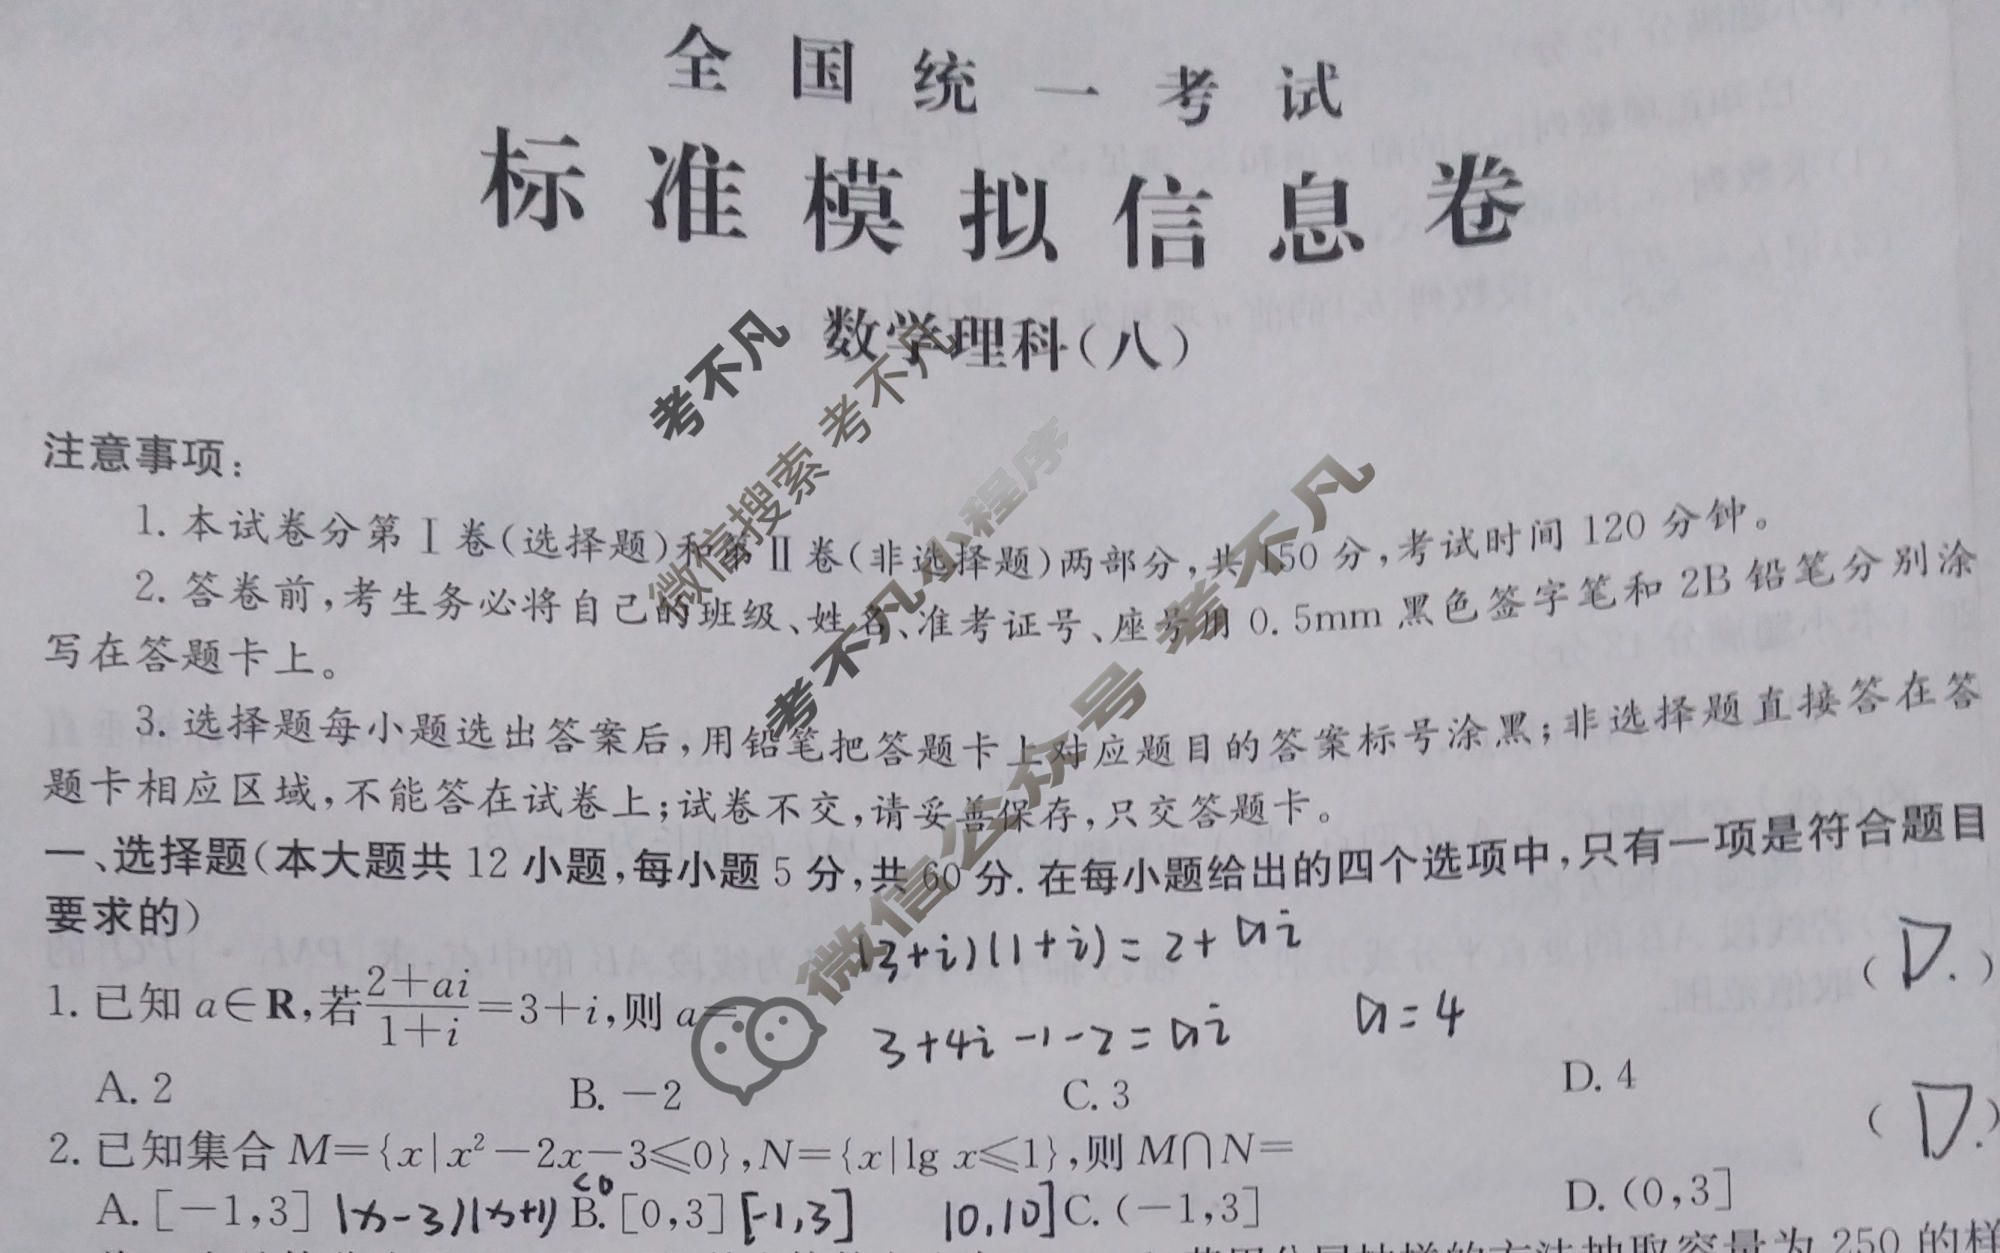 全国统一考试
标准模拟信息卷
数学理科(八)
考不凡
微信搜索 考不凡
考不凡小程序
微信公众号 考不凡
注意事项:
1. 本试卷分第Ⅰ卷(选择题)和第Ⅱ卷(非选择题)两部分,共150分,考试时间120分钟。
2. 答卷前,考生务必将自己的班级、姓名、准考证号、座号用0.5mm黑色签字笔和2B铅笔分别涂
写在答题卡上。
3. 选择题每小题选出答案后,用铅笔把答题卡上对应题目的答案标号涂黑;非选择题直接答在答
题卡相应区域,不能答在试卷上;试卷不交,请妥善保存,只交答题卡。
一、选择题(本大题共12小题,每小题5分,共60分.在每小题给出的四个选项中,只有一项是符合题目
要求的)
(3+i)(1+i)=2+ai
1. 已知a∈R,若\frac{2+ai}{1+i}=3+i,则a= ( D. )
3+4i-1-2=ai a=4
A. 2 B. -2 C. 3 D. 4
2. 已知集合M={x|x²-2x-3≤0},N={x|lg x≤1},则M∩N= ( D. )
A. [-1,3] (x-3)(x+1)<0 B. [0,3] [-1,3] (0,10] C. (-1,3] D. (0,3]